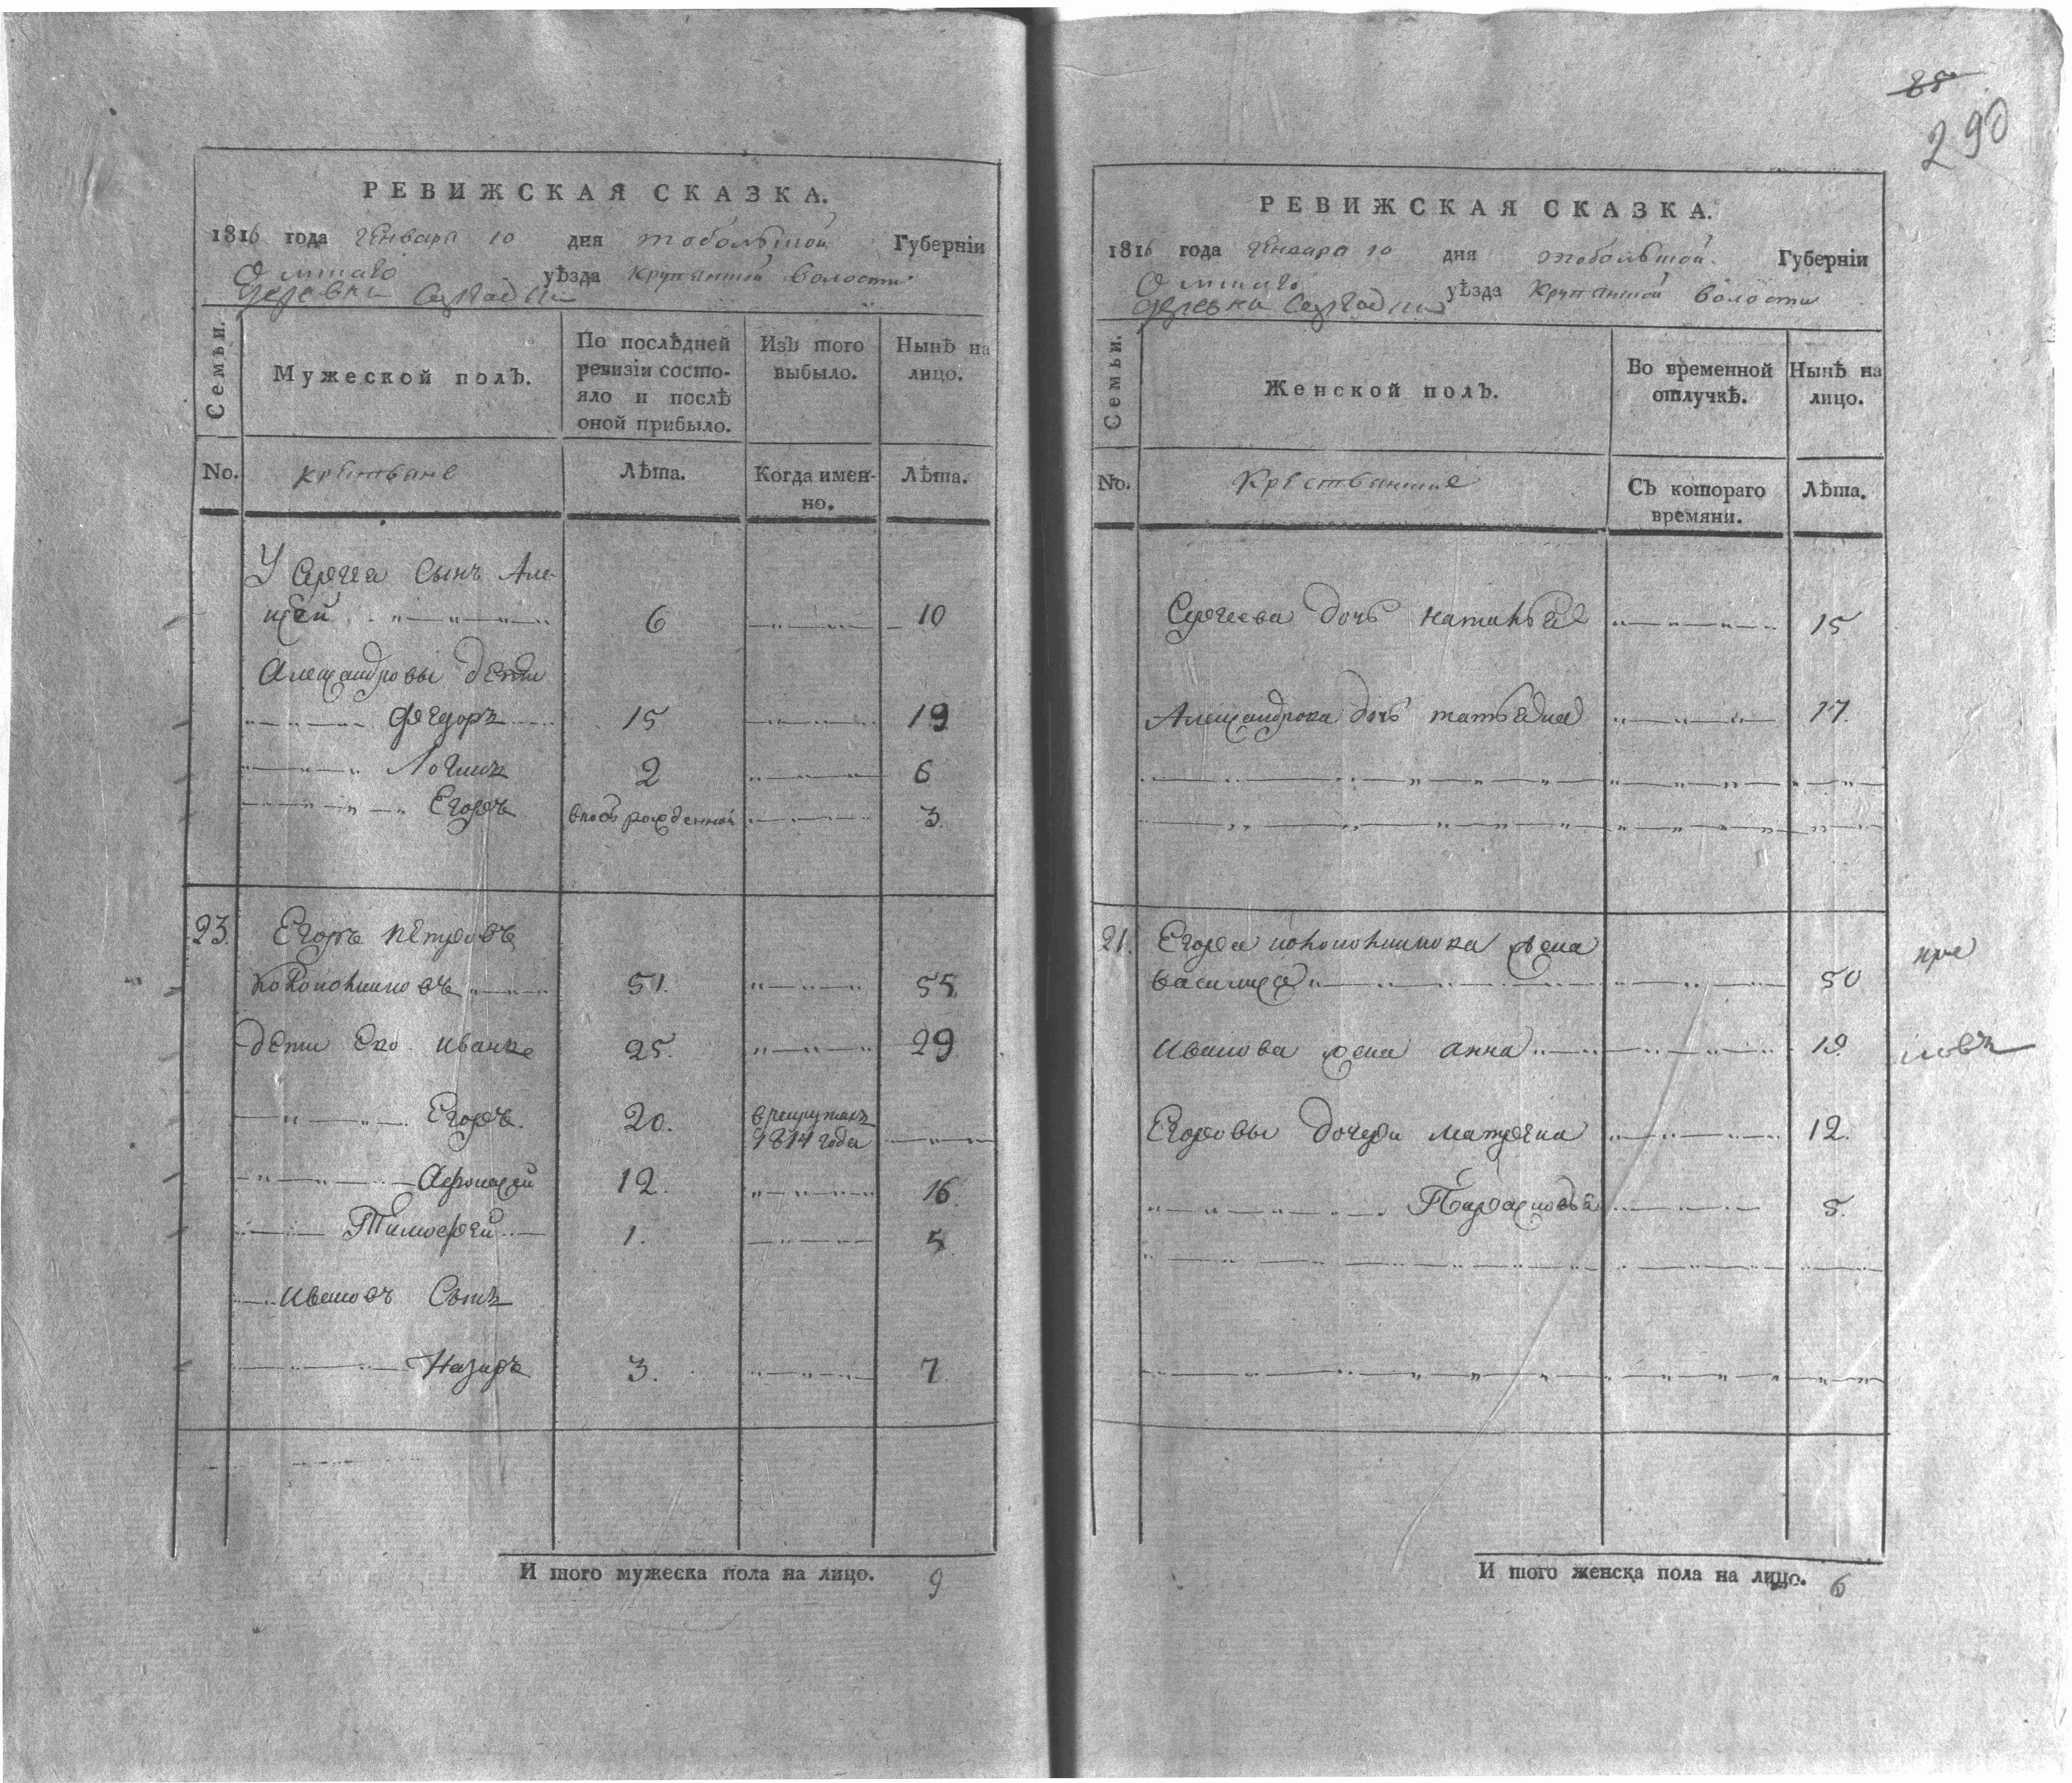 85
290
РЕВИЖСКАЯ СКАЗКА.
1816 года Генваря 10 дня тобольской Губерніи
Омскаго уѣзда Крупянской волости
деревки
Семьи.
Мужеской полъ.
По послѣдней ревизіи состо-
яло и послѣ
оной прибыло.
Изъ того
выбыло.
Нынѣ на
лицо.
No.
крестьяне
Лѣта.
Когда имен-
но.
Лѣта.
У Сергея Сынъ Але-
ксей 6 10
Александровы дети
Фёдоръ 15 19
Логинъ 2 6
Егоръ вновь рожденной 3
23. Егоръ петровъ
51. 55
дети Ево Иванъ 25. 29
Егоръ. 20. в рекрутахъ
1814 года
Афонасей 12. 16.
Тимофей 1. 5
Ивановъ Сынъ
Назаръ 3. 7
И того мужеска пола на лицо. 9
РЕВИЖСКАЯ СКАЗКА.
1816 года Генваря 10 дня тобольской Губерніи
Омскаго уѣзда Крупянской волости
Семьи.
Женской полъ.
Во временной
отлучкѣ.
Нынѣ на
лицо.
No.
Крестьянские
Съ котораго
времяни.
Лѣта.
Сергеева дочь наталья 15
Александрова дочь татьяна 17.
21. Егора жена
василиса 50
Иванова жена анна 19.
Егоровы дочери матрена 12.
Парасковья 5.
И того женска пола на лицо. 6